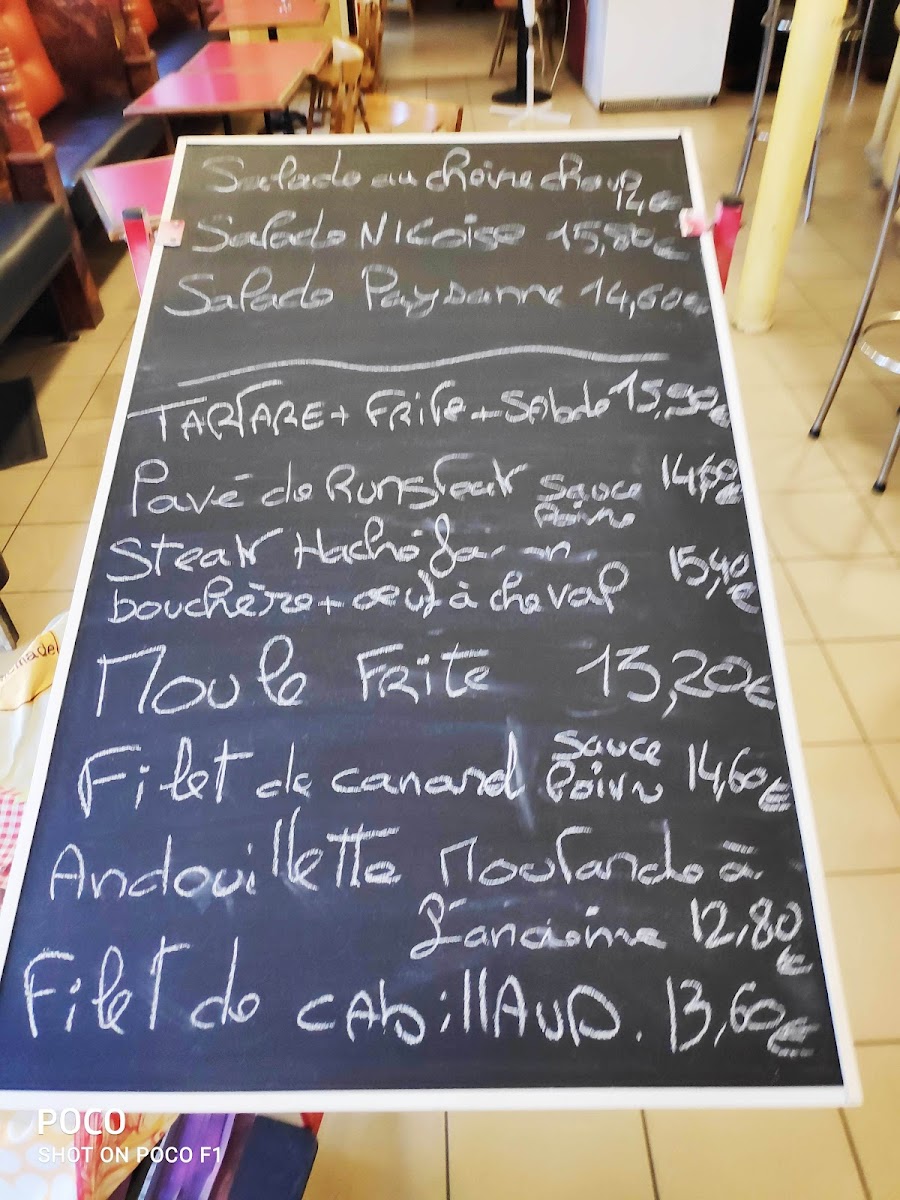 Salade au chèvre chaud
14,60
Salade Niçoise 15,80€
Salade Paysanne 14,60€
TARTARE + FRITE + SALADE 15,90€
Pavé de Rumsteak sauce 14,60€
Poivre
Steak Haché façon
bouchère + œuf à cheval 15,40€
Moule Frite 13,20€
Filet de canard sauce 14,60€
Poivre
Andouillette Moutarde à
l'ancienne 12,80
€
Filet de CABillAUD. 13,60€
POCO
SHOT ON POCO F1